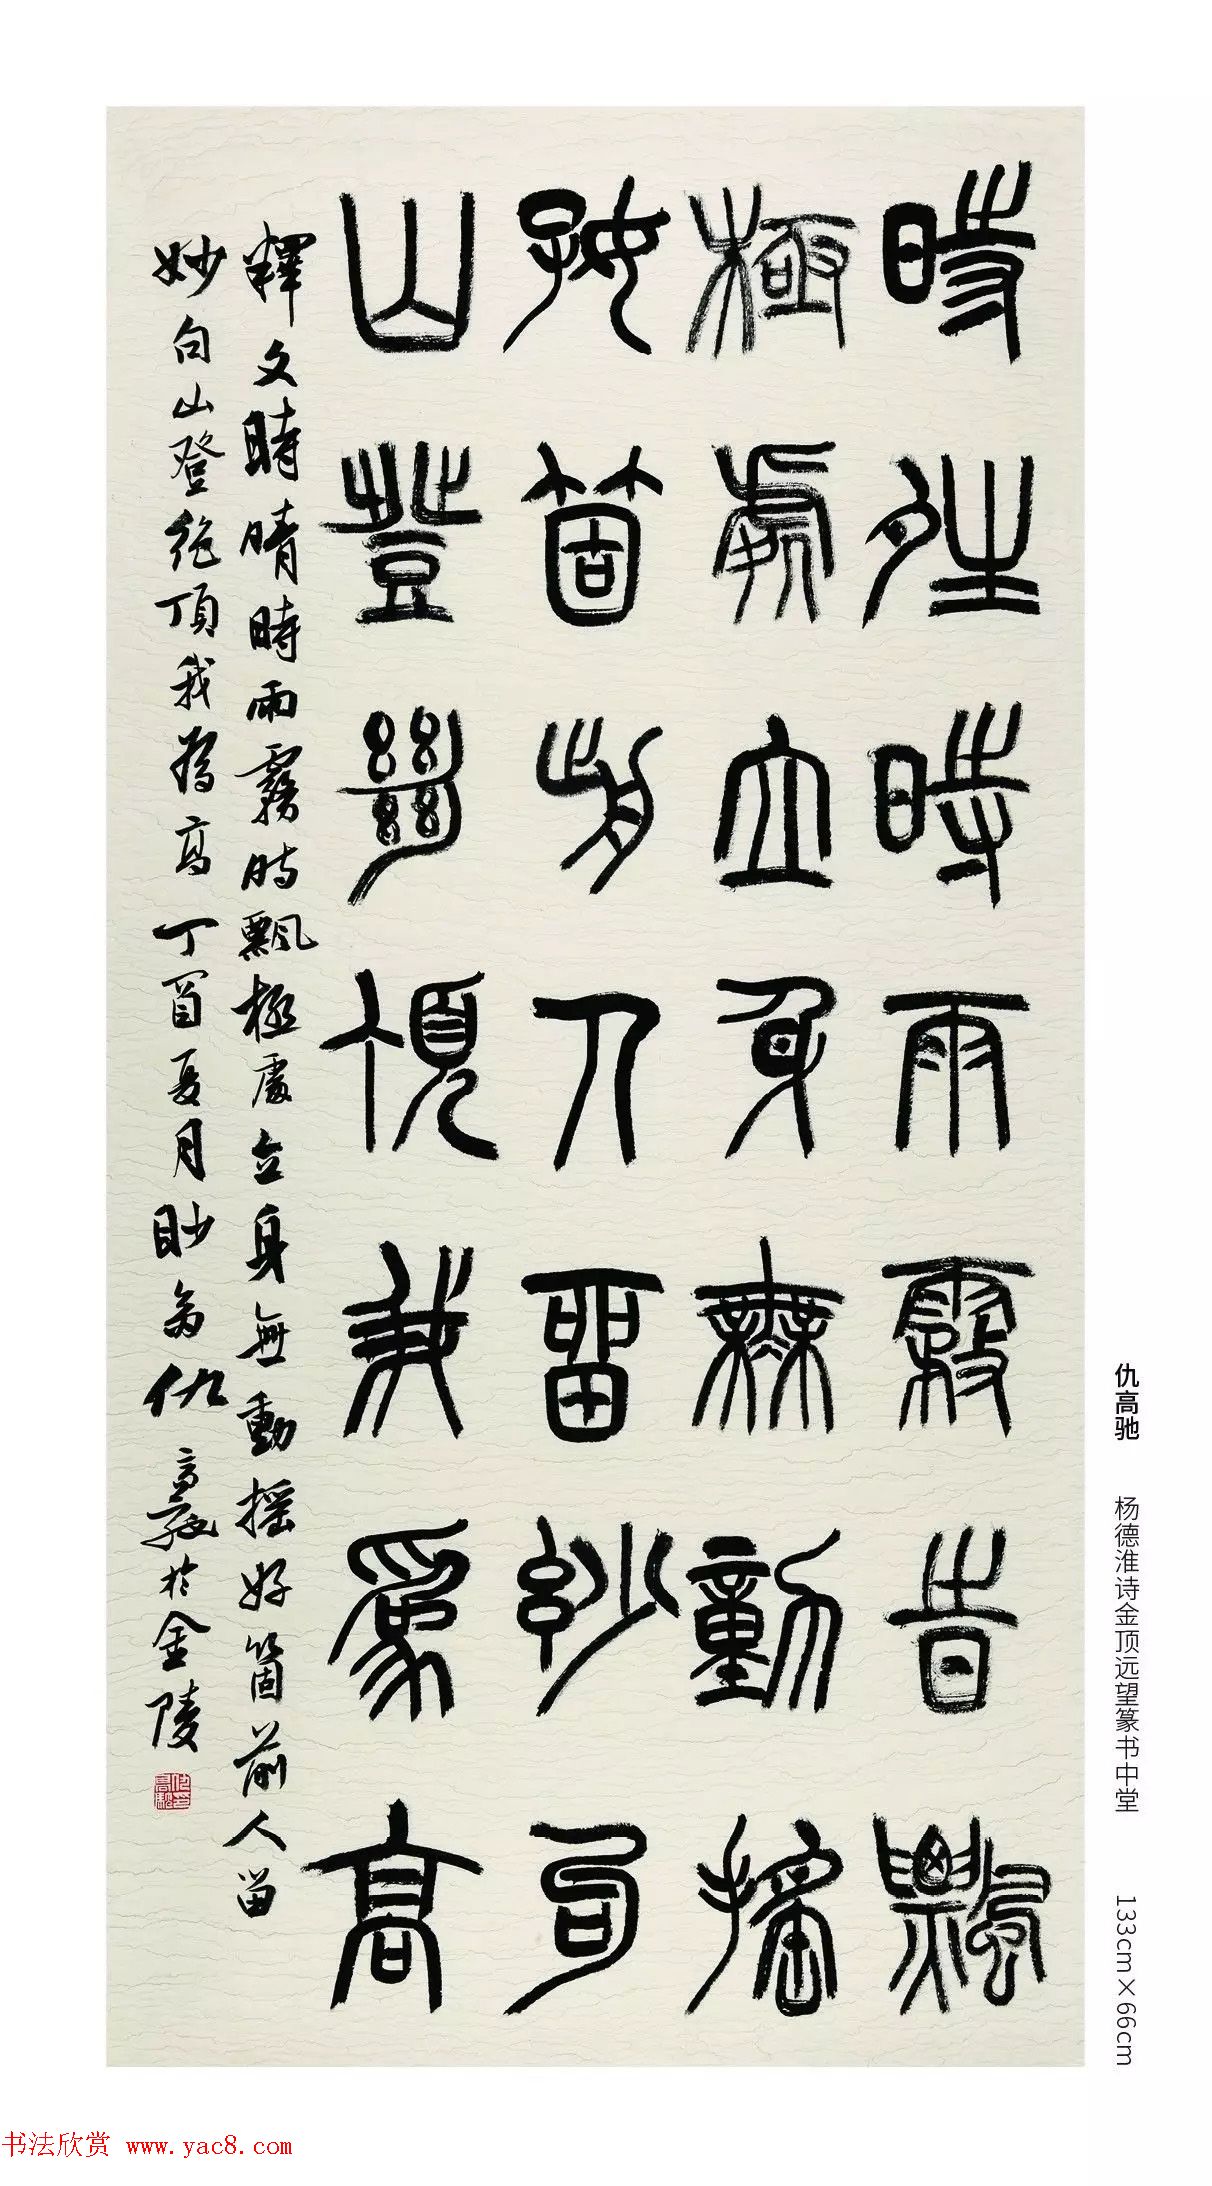 時姓時雨霧時飄
極處立身無動搖
好箇前人留妙句
山登絕頂我為高
釋文時晴時雨霧時飄極處立身無動搖好箇前人留
妙句山登絕頂我為高丁酉夏月眇翁仇高馳於金陵
仇高驰 杨德淮诗金顶远望篆书中堂 133cm×66cm
书法欣赏 www.yac8.com